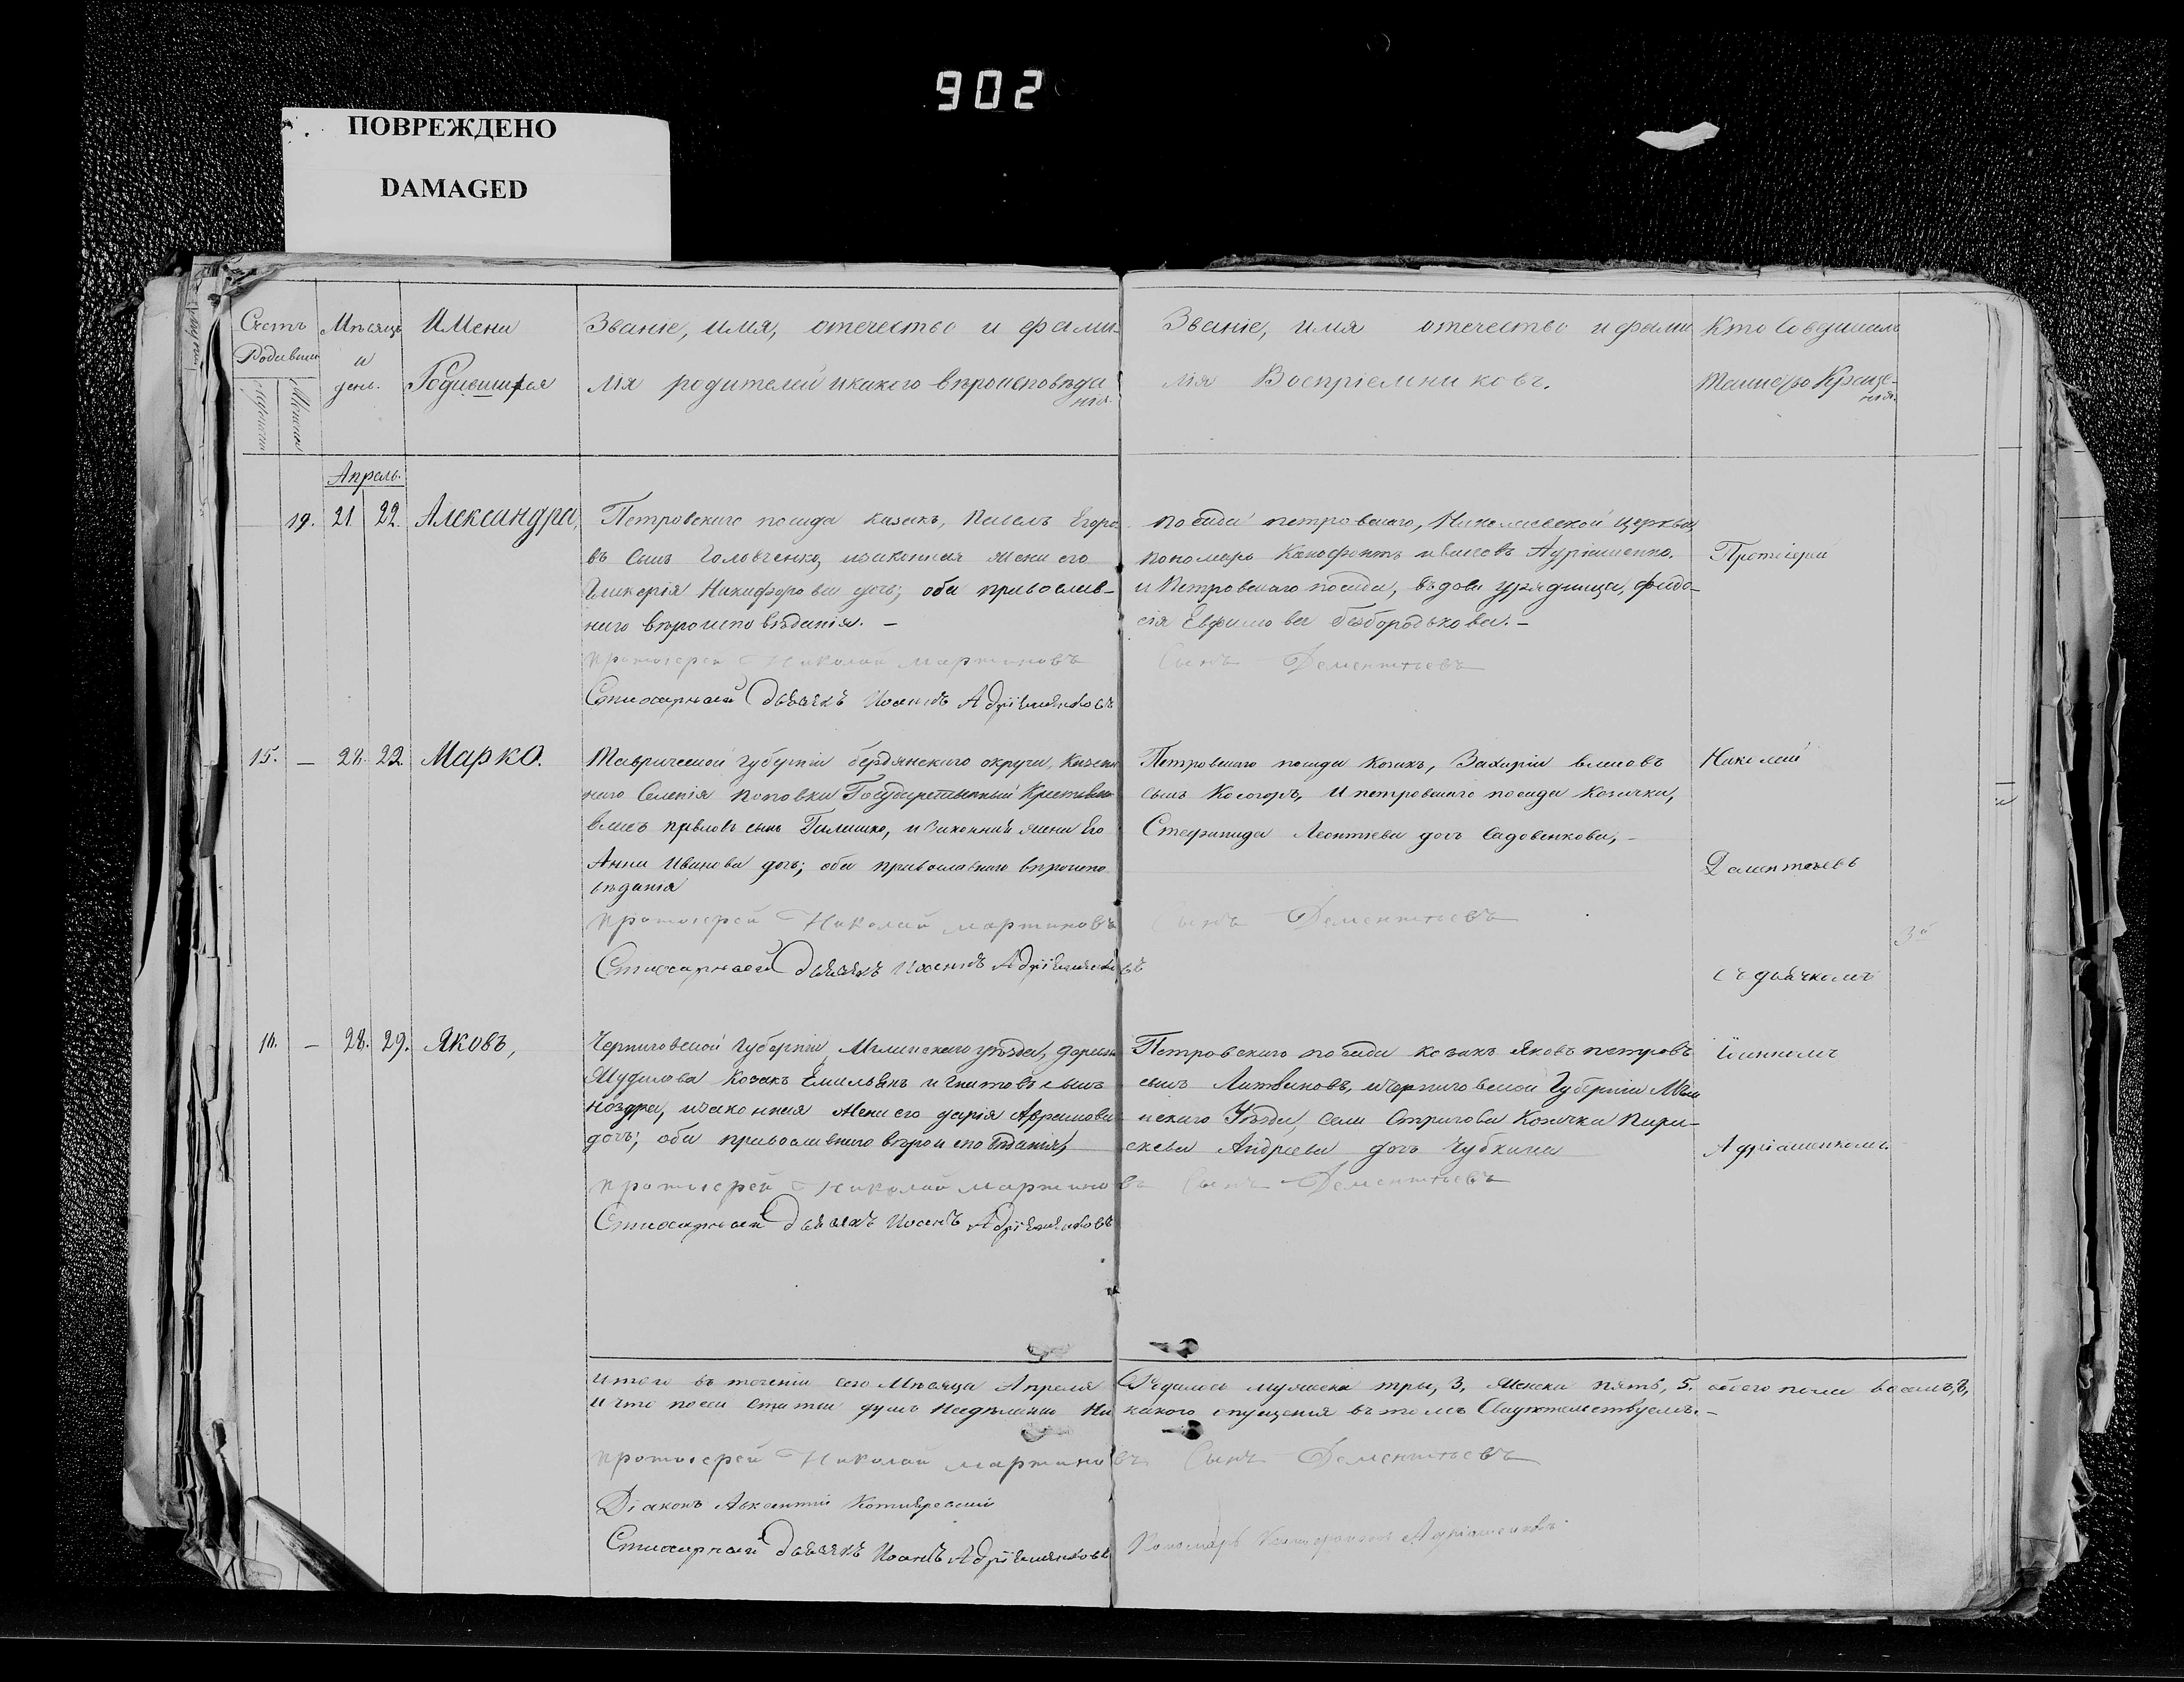 902
ПОВРЕЖДЕНО
DAMAGED
Счетъ
Родивших
Мѣсяцъ
и
день.
Имена
Родившихся
Званіе, имя, отечество и фами
лія родителей и какого вѣроисповѣда
нія.
Званіе, имя отечество и фами
лія Воспріемниковъ.
Кто Совершалъ
Таинство Креще-
нія.
Апрель.
19. 21 22. Александра,
Петровскаго посада казакъ, Павелъ Егоро
въ сынъ Головченко, изаконная жена его
Гликерія Никифорова дочь; оба православ-
наго вѣроисповѣданія. –
протоіерей Николай мартиновъ
Стихарный дьячекъ Иоаннъ Адріяшенковъ
посада петровскаго, Николаевской церкви,
пономарь Ивановъ Адріашенко.
и Петровскаго посада, вѣдова урядница, федо-
сія Евфимова Безбородькова. –
Сынъ Дементьевъ
Протоіерей
15. – 22. 22. Марко.
Таврической губерніи бердянскаго округа, Казен
наго Селенія поповки Государственный Крестьянин
павловъ сынъ Галишко, и Законная жена Его
Анна Иванова дочь; оба православнаго вѣроиспо
вѣданія
протоіерей Николай мартиновъ
Стихарный дьячекъ Иоаннъ Адріяшенковъ
Петровскаго посада козакъ, Захарій власовъ
сынъ Косогоръ, и петровскаго посада козачка,
Стефанида Леонтіева дочь Садовенкова, –
Сынъ Дементьевъ
Николай
Дементьевъ
съ дьячкомъ
16. – 28. 29. Яковъ,
Черниговской губерніи, Мглинскаго уѣзда, деревни
козакъ Емильянъ игнатовъ сынъ
ноздра, изаконная жена его дарія Авраамова
дочь; оба православнаго вѣроисповѣданія,
протоіерей Николай мартиновъ Сынъ Дементьевъ
Стихарный дьячекъ Иоаннъ Адріяшенковъ
Петровскаго посада козакъ Яковъ петровъ
сынъ Литвиновъ, ичерниговской Губерніи Мгли
нскаго Уѣзда, села Стригова Козачка Пара-
скева Андреева дочь Чубкина
Іоанномъ
Адріашенкомъ.
Итого въ теченіи сего Мѣсяца Апреля Родилось мужеска три, 3, женска пять, 5. обоего пола восемь, 8,
и что посей статьи душъ Никакого опущенія въ томъ Свидѣтельствуемъ. –
протоіерей Николай мартиновъ Сынъ Дементьевъ
Діаконъ Авксентій Котляревскій
Стихарный дьячекъ Иоаннъ Адріяшенковъ
Пономарь Адріашенковъ